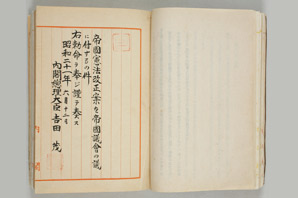 帝國憲法改正案を帝國議會の議
に付するの件
右勅命ヲ奉シ謹テ奏ス
昭和二十一年六月十二日
内閣總理大臣吉田茂